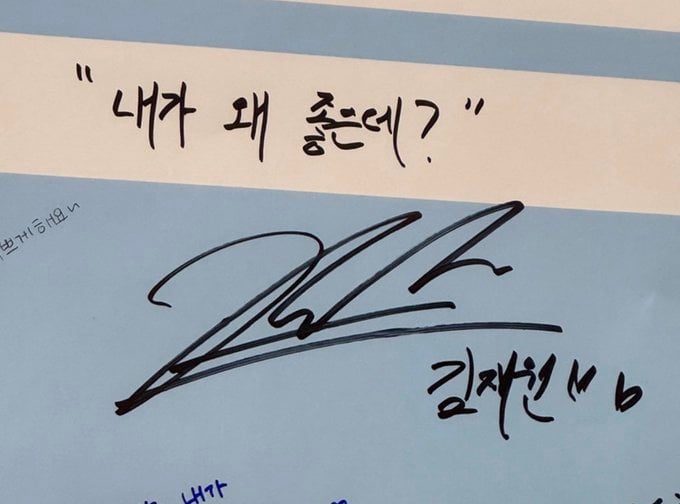 "내가 왜 좋은데?"
쁘게해요
김재원
내가